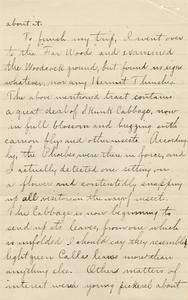 about it.
To finish my trip, I went over
to the Far Woods and examined
the Woodcock ground, but found no signs
whatever, nor any Hermit Thrushes.
The above mentioned tract contains
a great deal of Skunk Cabbage, now
in full blossom and buzzing with
carrion fly and other insects. Accordingly,
by, the Phoebes were there in force, and
I actually detected one sitting on
a flower and contentedly snapping
up all visitors in the way of insect.
The Cabbage is now beginning to
send up its leaves, from one which
is unfolded I should say they resemble
light green Calla leaves more than
anything else. Other matters of
interest were young pickerel about